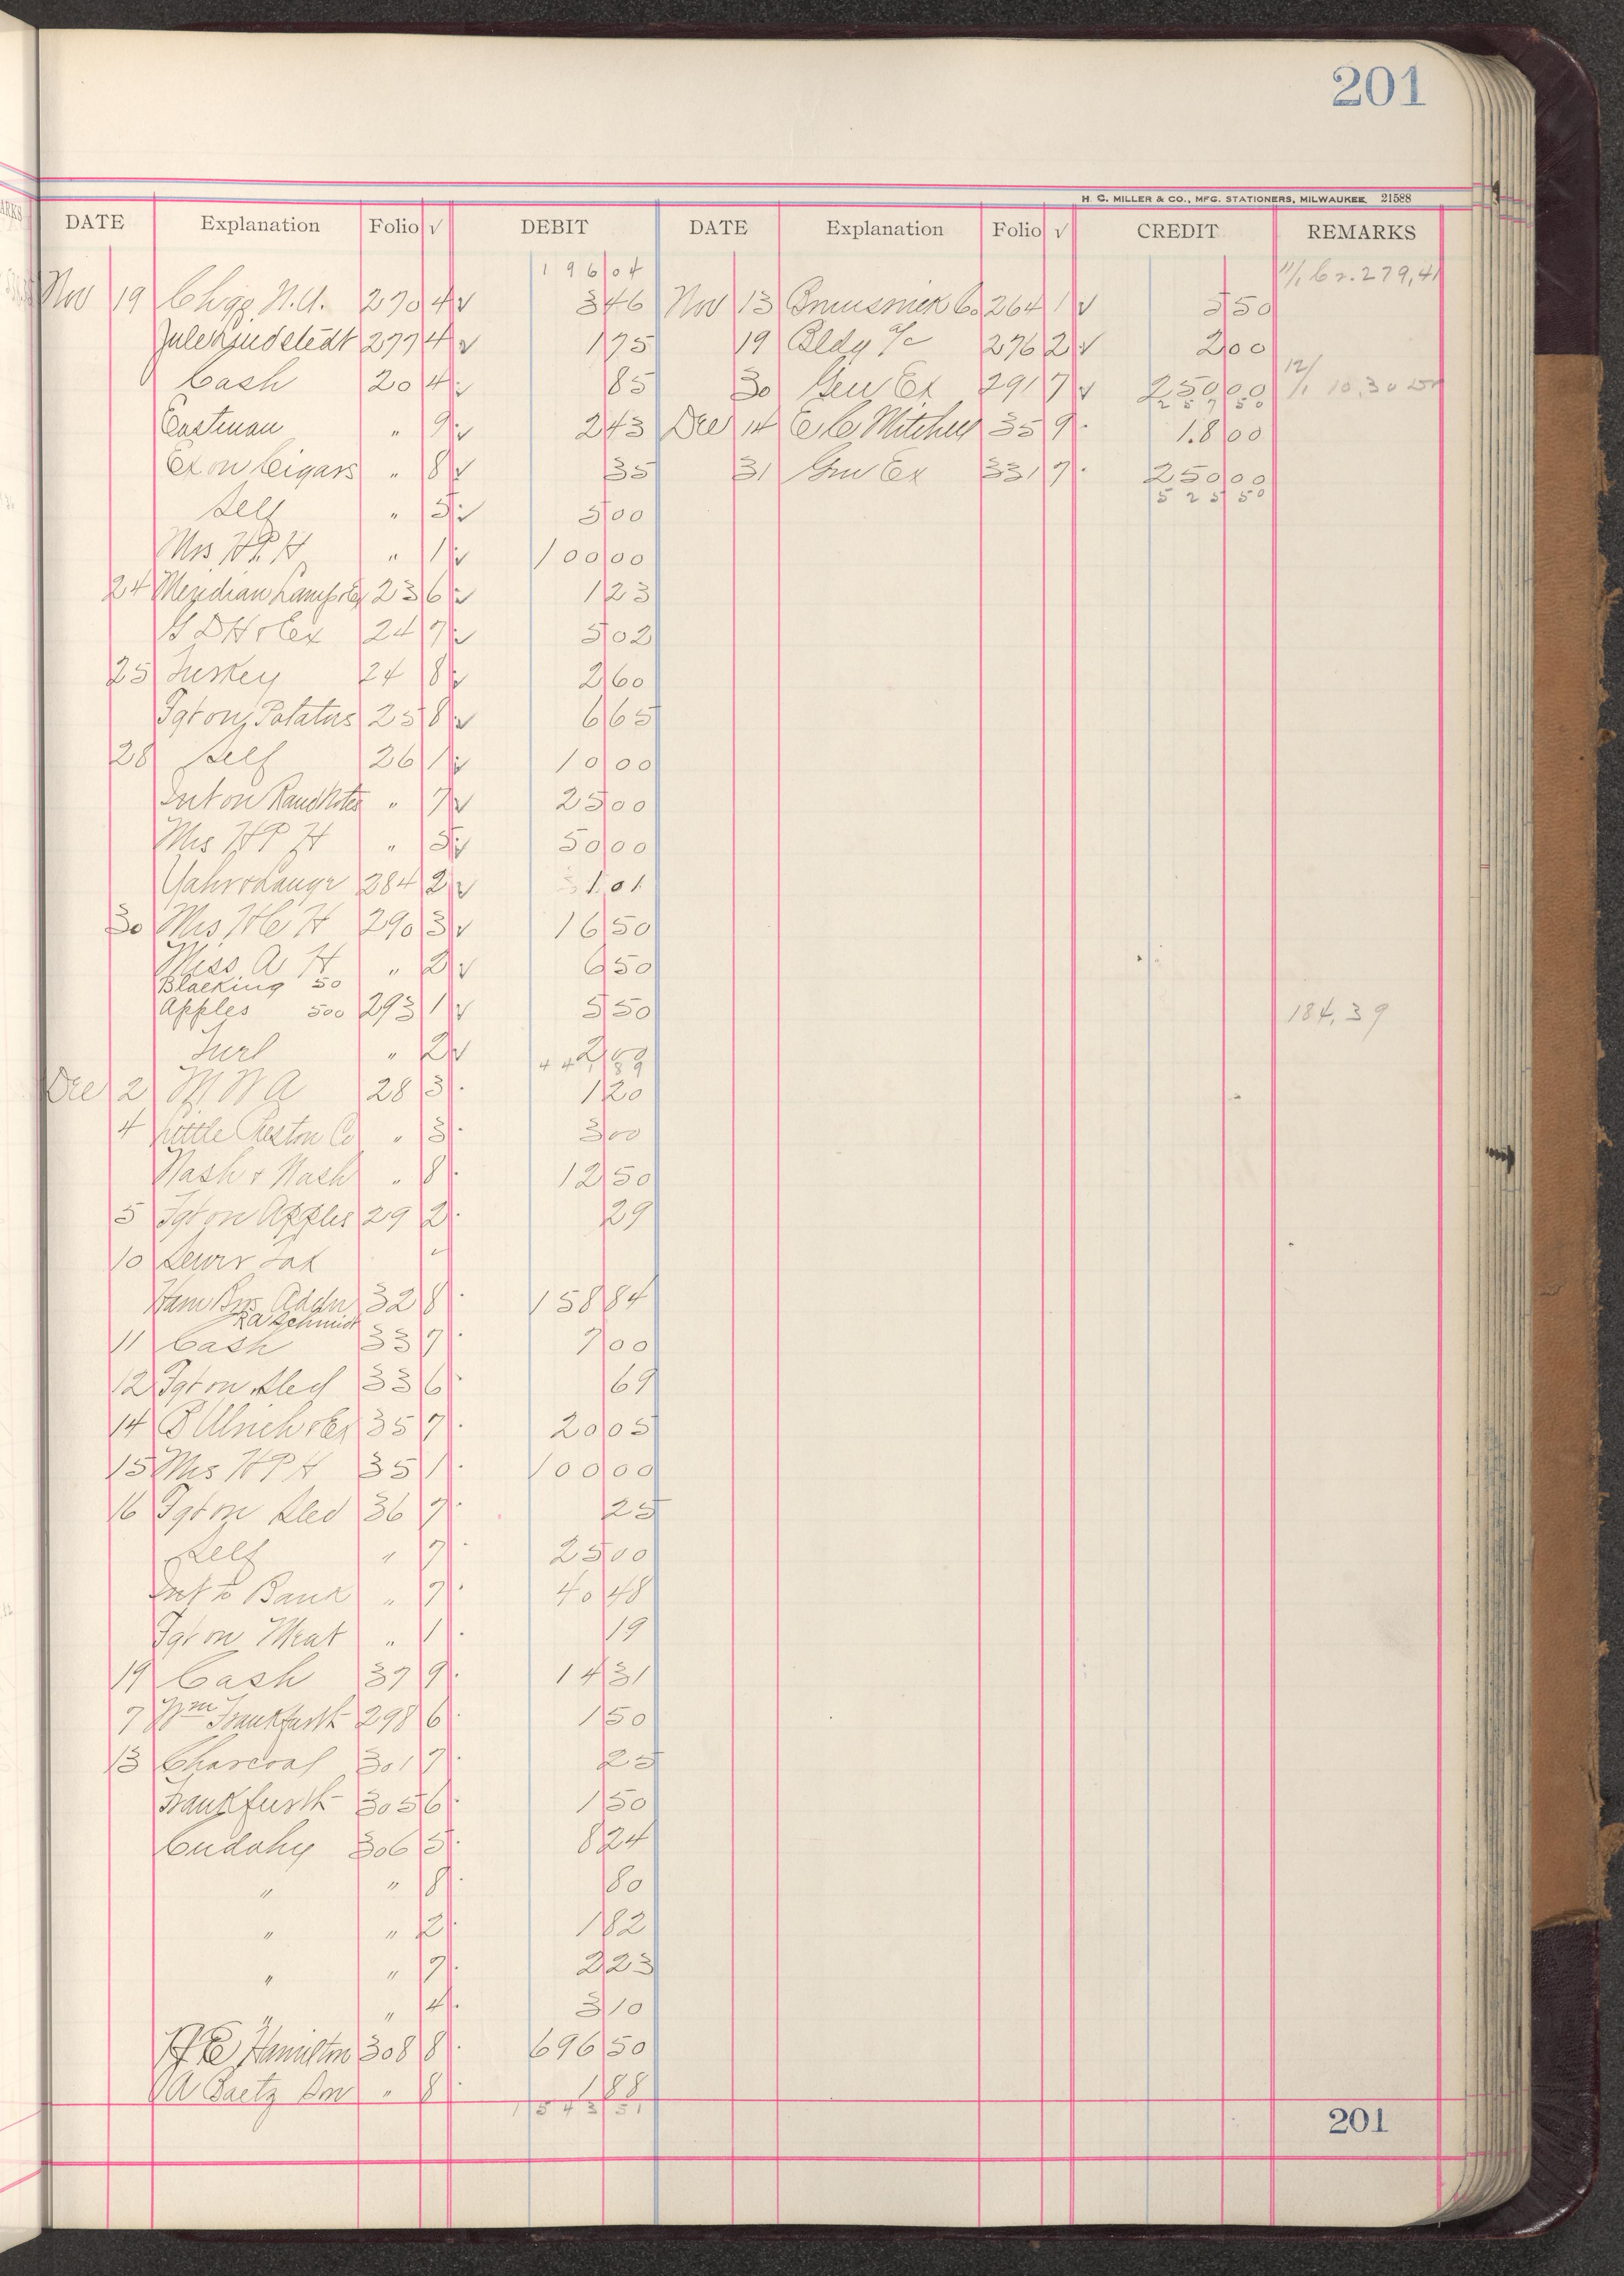 201
H. C. MILLER & CO., MFG. STATIONERS, MILWAUKEE 21588
DATE Explanation Folio √ DEBIT DATE Explanation Folio √ CREDIT REMARKS
196 04 11/1 Cr. 279,41
Nov 19 Chgg N.U. 270 4 √ 3 46 Nov 13 264 1 √ 5 50
277 4 √ 1 75 19 Bldg 276 2 √ 2 00
Cash 20 4 √ 85 30 Gen Ex 291 7 √ 250 00 12/1 10,30
257 50
Eastman " 9 √ 2 43 Dec 14 E C Mitchell 35 9 18 00
Ex on Cigars " 8 √ 35 31 Gen Ex 331 7 250 00
525 50
Self " 5 √ 5 00
Mrs H P H " 1 √ 100 00
24 Meridian Lamp 23 6 √ 1 23
24 7 √ 5 02
25 Turkey 24 8 √ 2 60
Fgt on Potatoes 25 8 √ 6 65
28 Self 26 1 √ 10 00
Int on Rand Notes " 7 √ 25 00
Mrs H P H " 5 √ 50 00
Yahr & Lange 284 2 √ 1 01
30 Mrs H C H 290 3 √ 16 50
Miss A H " 2 √ 6 50
Blacking 50
Apples 500 293 1 √ 5 50 184,39
" 2 √
Dec 2 M W A 28 3 1 20
4 " 3 3 00
Nash & Nash " 8 12 50
5 Fgt on Apples 29 2 29
10 Sewer Tax
Ham Bros Addn 32 8 158 84
R A Schmidt
11 Cash 33 7 7 00
12 Fgt on Sled 33 6 69
14 35 7 20 05
15 Mrs H P H 35 1 100 00
16 Fgt on Sled 36 7 25
Self " 7 25 00
Int to Bank " 7 40 48
Fgt on Meat " 1 19
19 Cash 37 9 14 31
7 Wm Frankfurth 298 6 1 50
13 Charcoal 301 7 25
Frankfurth 305 6 1 50
Cudahy 306 5 8 24
" " 8 80
" " 2 1 82
" " 7 2 23
" " 4 3 10
Hamilton 308 8 696 50
" 8 1 88
1543 51
201